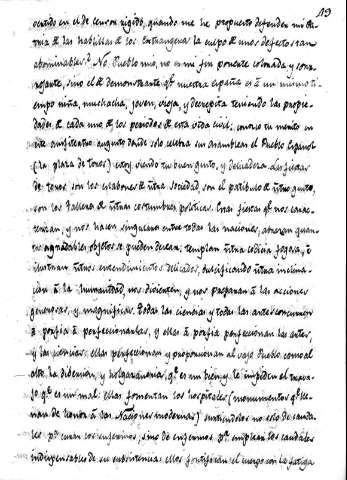 49
vertido en el de censor rigido, quando me he propuesto defender mi Pa-
tria de las hablillas de los extrangeros la culpo de unos defectos tan
abominables? No, Pueblo mio, no es mi fin ponerte colorada y sonr-
sino el de demonstrarte qe. nuestra españa es à un mismo ti-
empo niña, muchacha, joven, vieja, y decrepita teniendo las propie-
dades de cada uno de los periodos de esta vida civil: conozco tu merito en
este amfiteatro augusto donde solo celebra sus asambleas el Pueblo Español
(la plaza de toros) estoy viendo tu buen gusto, y delicadeza. Las fiestas
de toros son los eslabones de ntra. sociedad, son el pabulo de ntro. gusto,
son los Talleres de ntras. costumbres politicas. Estas fiestas qe. nos carac-
terizan, y nos hacen singulares entre todas las naciones, abrazan quan-
tos agradables objetos se pueden desear: templan ntra. codicia fogosa, è
ilustran ntros. entendimientos delicados, dulcificando ntra. inclina-
cion à la humanidad, nos divierten, y nos preparan à las acciones
generosas, y magnificas. Todas las ciencias y todas las artes concurren
à porfia à perfeccionarlas, y ellas à porfia perfeccionan las artes,
y las ciencias: ellas perfeccionan y proporcionan al vajo Pueblo como al
alto la diversion, y holgazaneria, qe. es un bien, y le impiden el traba-
jo qe. es un mal: ellas fomentan los hospitales (monumentos qe. lle-
nan de honor à las Naciones modernas) surtiendolos no solo de cauda-
les pa. curar los enfermos, sino de enfermos pa. emplear los caudales
indispensables de su subsistencia: ellas fortifican el cuerpo con la fatiga